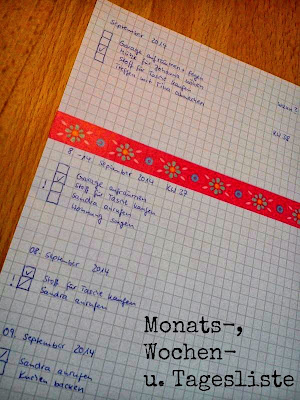 September 2014
Garage aufräumen + fegen
Mütze für Johanna nähen
Stoff für Tasche kaufen
Treffen mit Tina ausmachen
KW 38
8. - 14. September 2014 KW 37
Garage aufräumen
Stoff für Tasche kaufen
! Sandra anrufen
Wohnung saugen
08. September 2014
Stoff für Tasche kaufen
! Sandra anrufen
09. September 2014
Sandra anrufen
Kuchen backen
Monats-,
Wochen-
u. Tagesliste